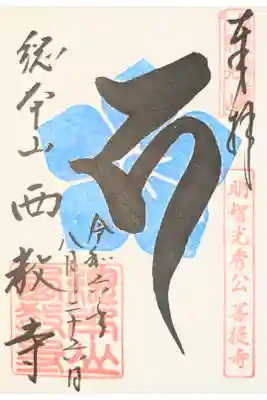 奉拝
明智光秀公 菩提寺
令和六年
八月二十六日
総本山 西教寺